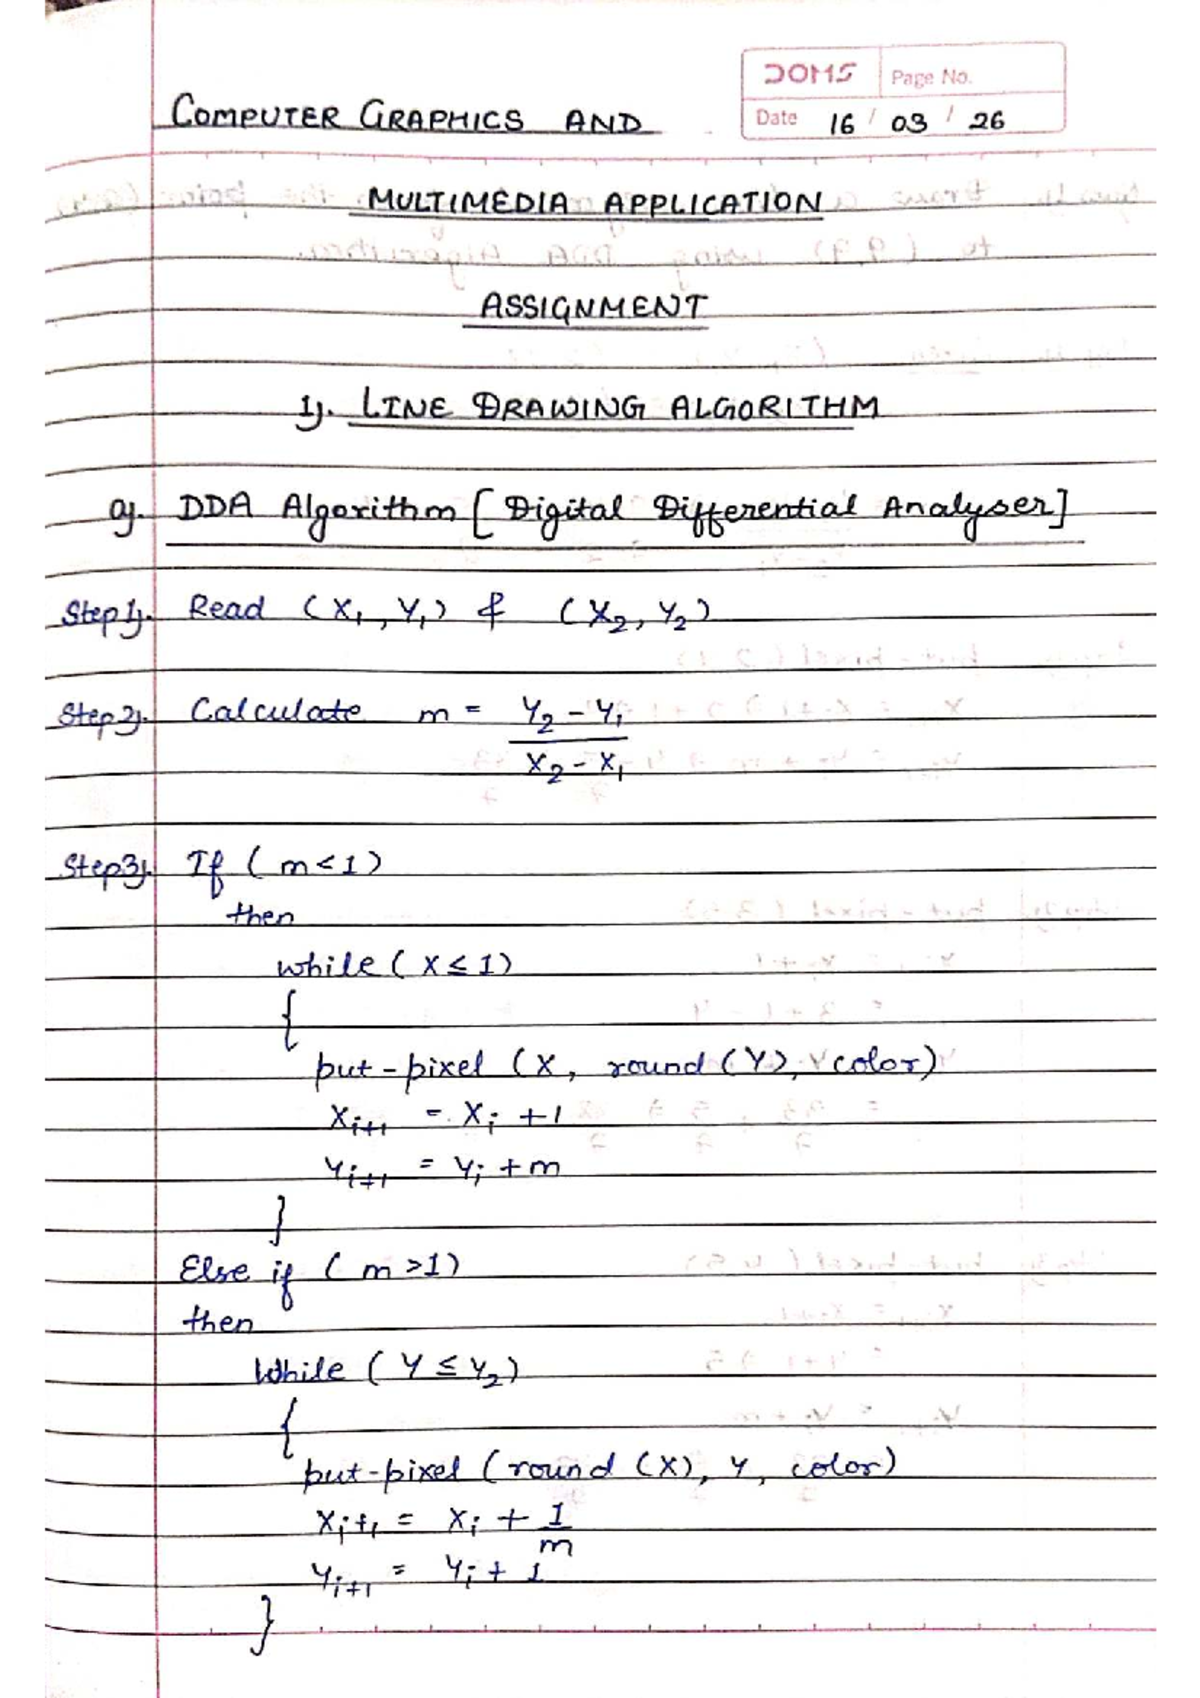 DOMS Page No.
Date 16 / 03 / 26
COMPUTER GRAPHICS AND
MULTIMEDIA APPLICATION
ASSIGNMENT
1). LINE DRAWING ALGORITHM
a). DDA Algorithm [Digital Differential Analyser]
Step 1). Read (X₁, Y₁) & (X₂, Y₂)
Step 2). Calculate m = Y₂ - Y₁
X₂ - X₁
Step 3). If (m < 1)
then
while (X ≤ 1)
{
put-pixel (X, round (Y), color)
Xᵢ₊₁ = Xᵢ + 1
Yᵢ₊₁ = Yᵢ + m
}
Else if (m > 1)
then
While (Y ≤ Y₂)
{
put-pixel (round (X), Y, color)
Xᵢ₊₁ = Xᵢ + 1
m
Yᵢ₊₁ = Yᵢ + 1
}